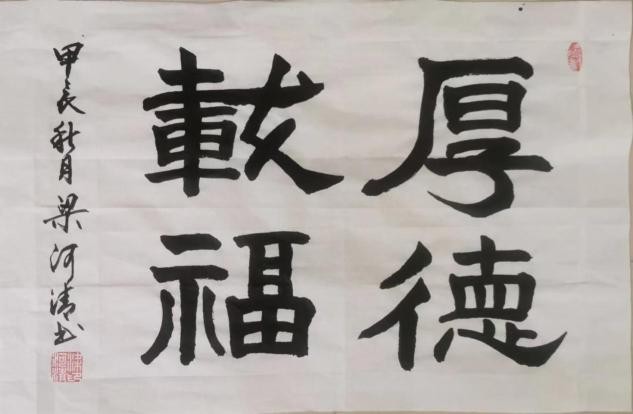 厚德
載福
甲辰秋月梁河清书